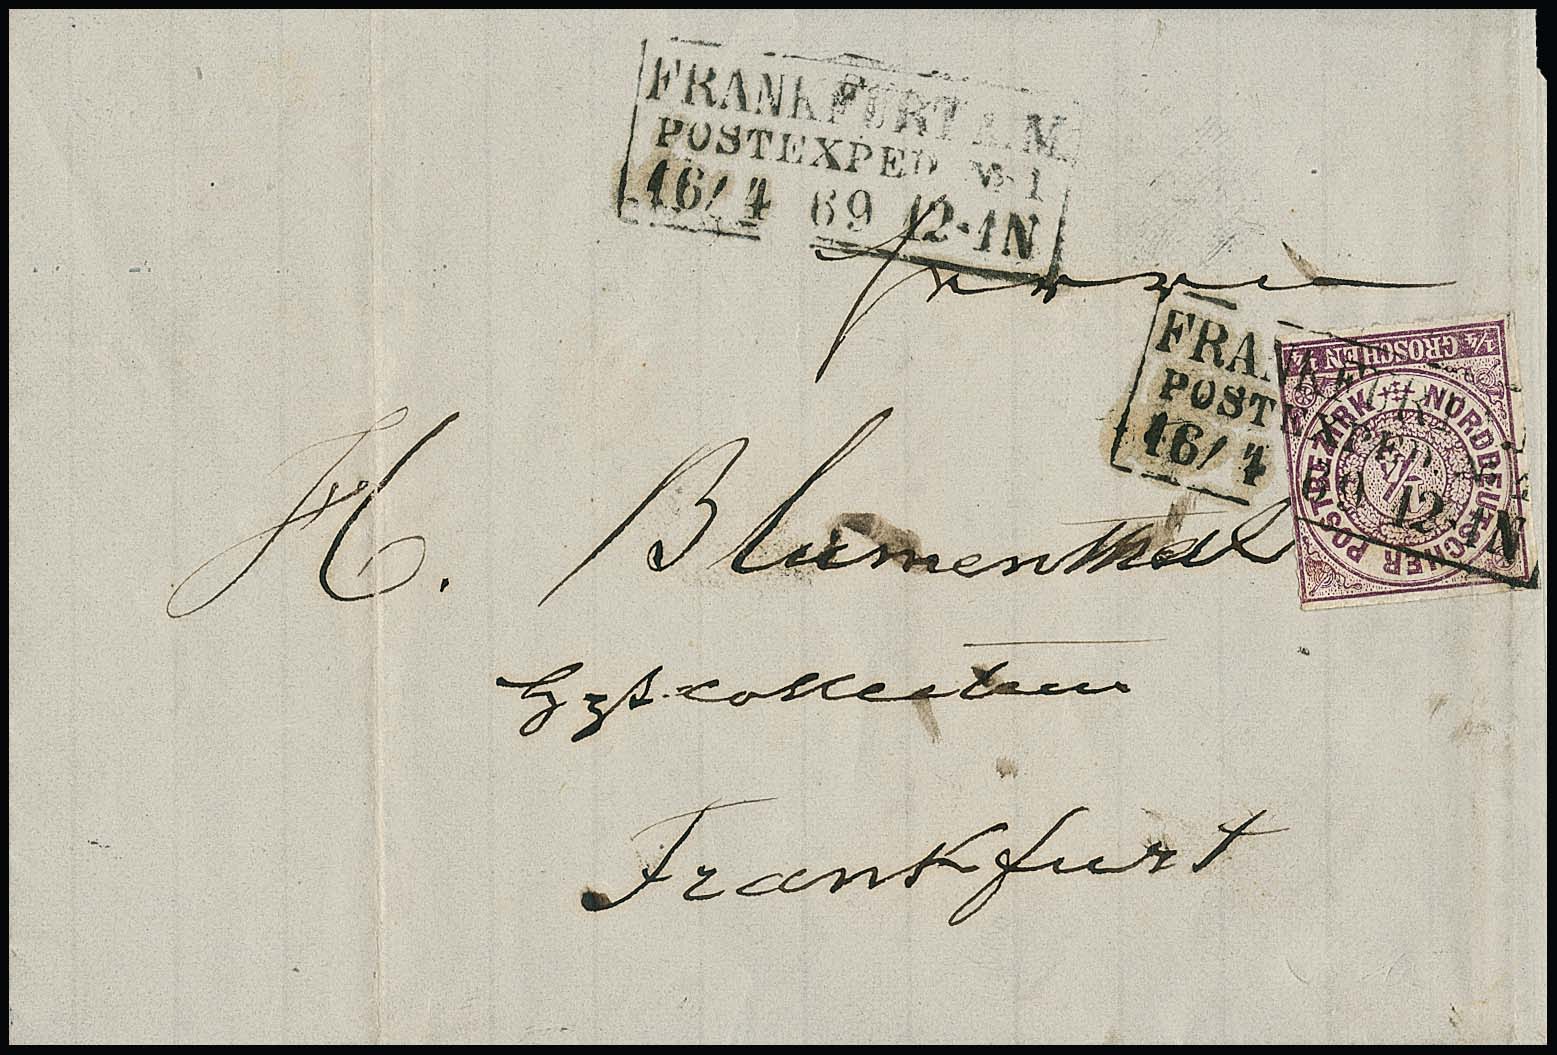 FRANKFURT A. M.
POSTEXPED № 1
16/4 69 12-1N
franco
FRANKFUR
POSTEXPED.
16/4 69 12-1N
1/4 GROSCHEN 1/4
NORDDEUTSCHER POSTBEZIRK
1/4
H. Blumenthal
Frankfurt